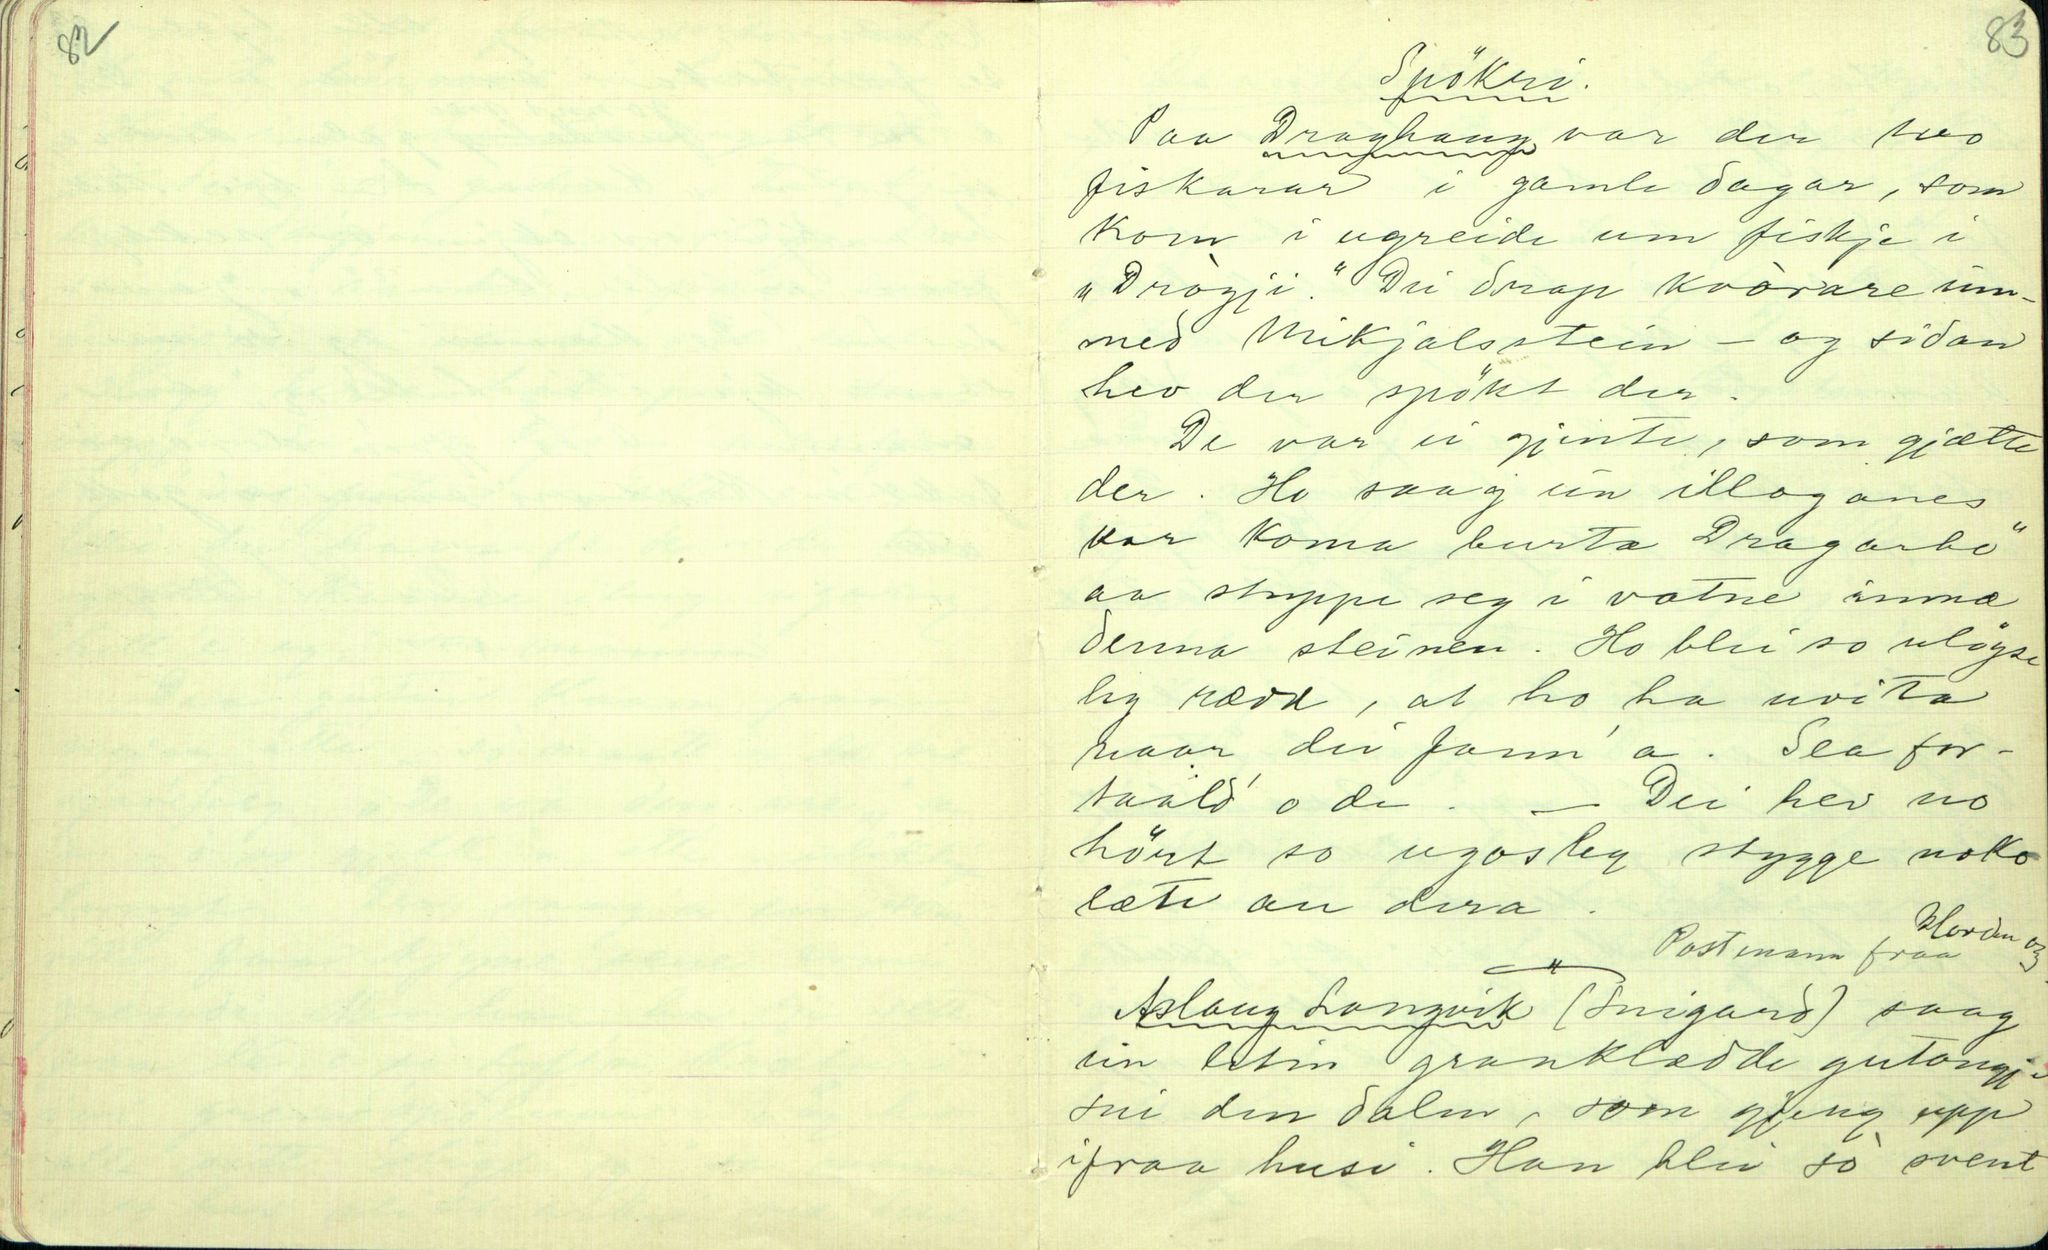 82
83
Spökri.
Paa Draghaug var der tvo
fiskarar i gamle dagar, som
kom i ugreide um fiskje i
"Drògji." Dei drap kvòrare inn-
med Mikjalsstein – og sidan
hev der spökt der.
De var ei gjente, som gjætte
der. Ho saag ein illogànes
kar koma burta Dragarbö
aa stuppe seg i vatne inma
denna steinen. Ho blei so ulögse
lig rædd, at ho ha uvita
naar dei fann' a. Sea for-
taald' o de. – Dei hev no
hört so ugosleg stygge noko
læte au dera.
Postmann fraa Norden
Aslaug Longvik (Snigard) saag
ein liten graaklædde gutongje
sni den dalen, som gjeng upp
ifraa husi. Han blei sò svent